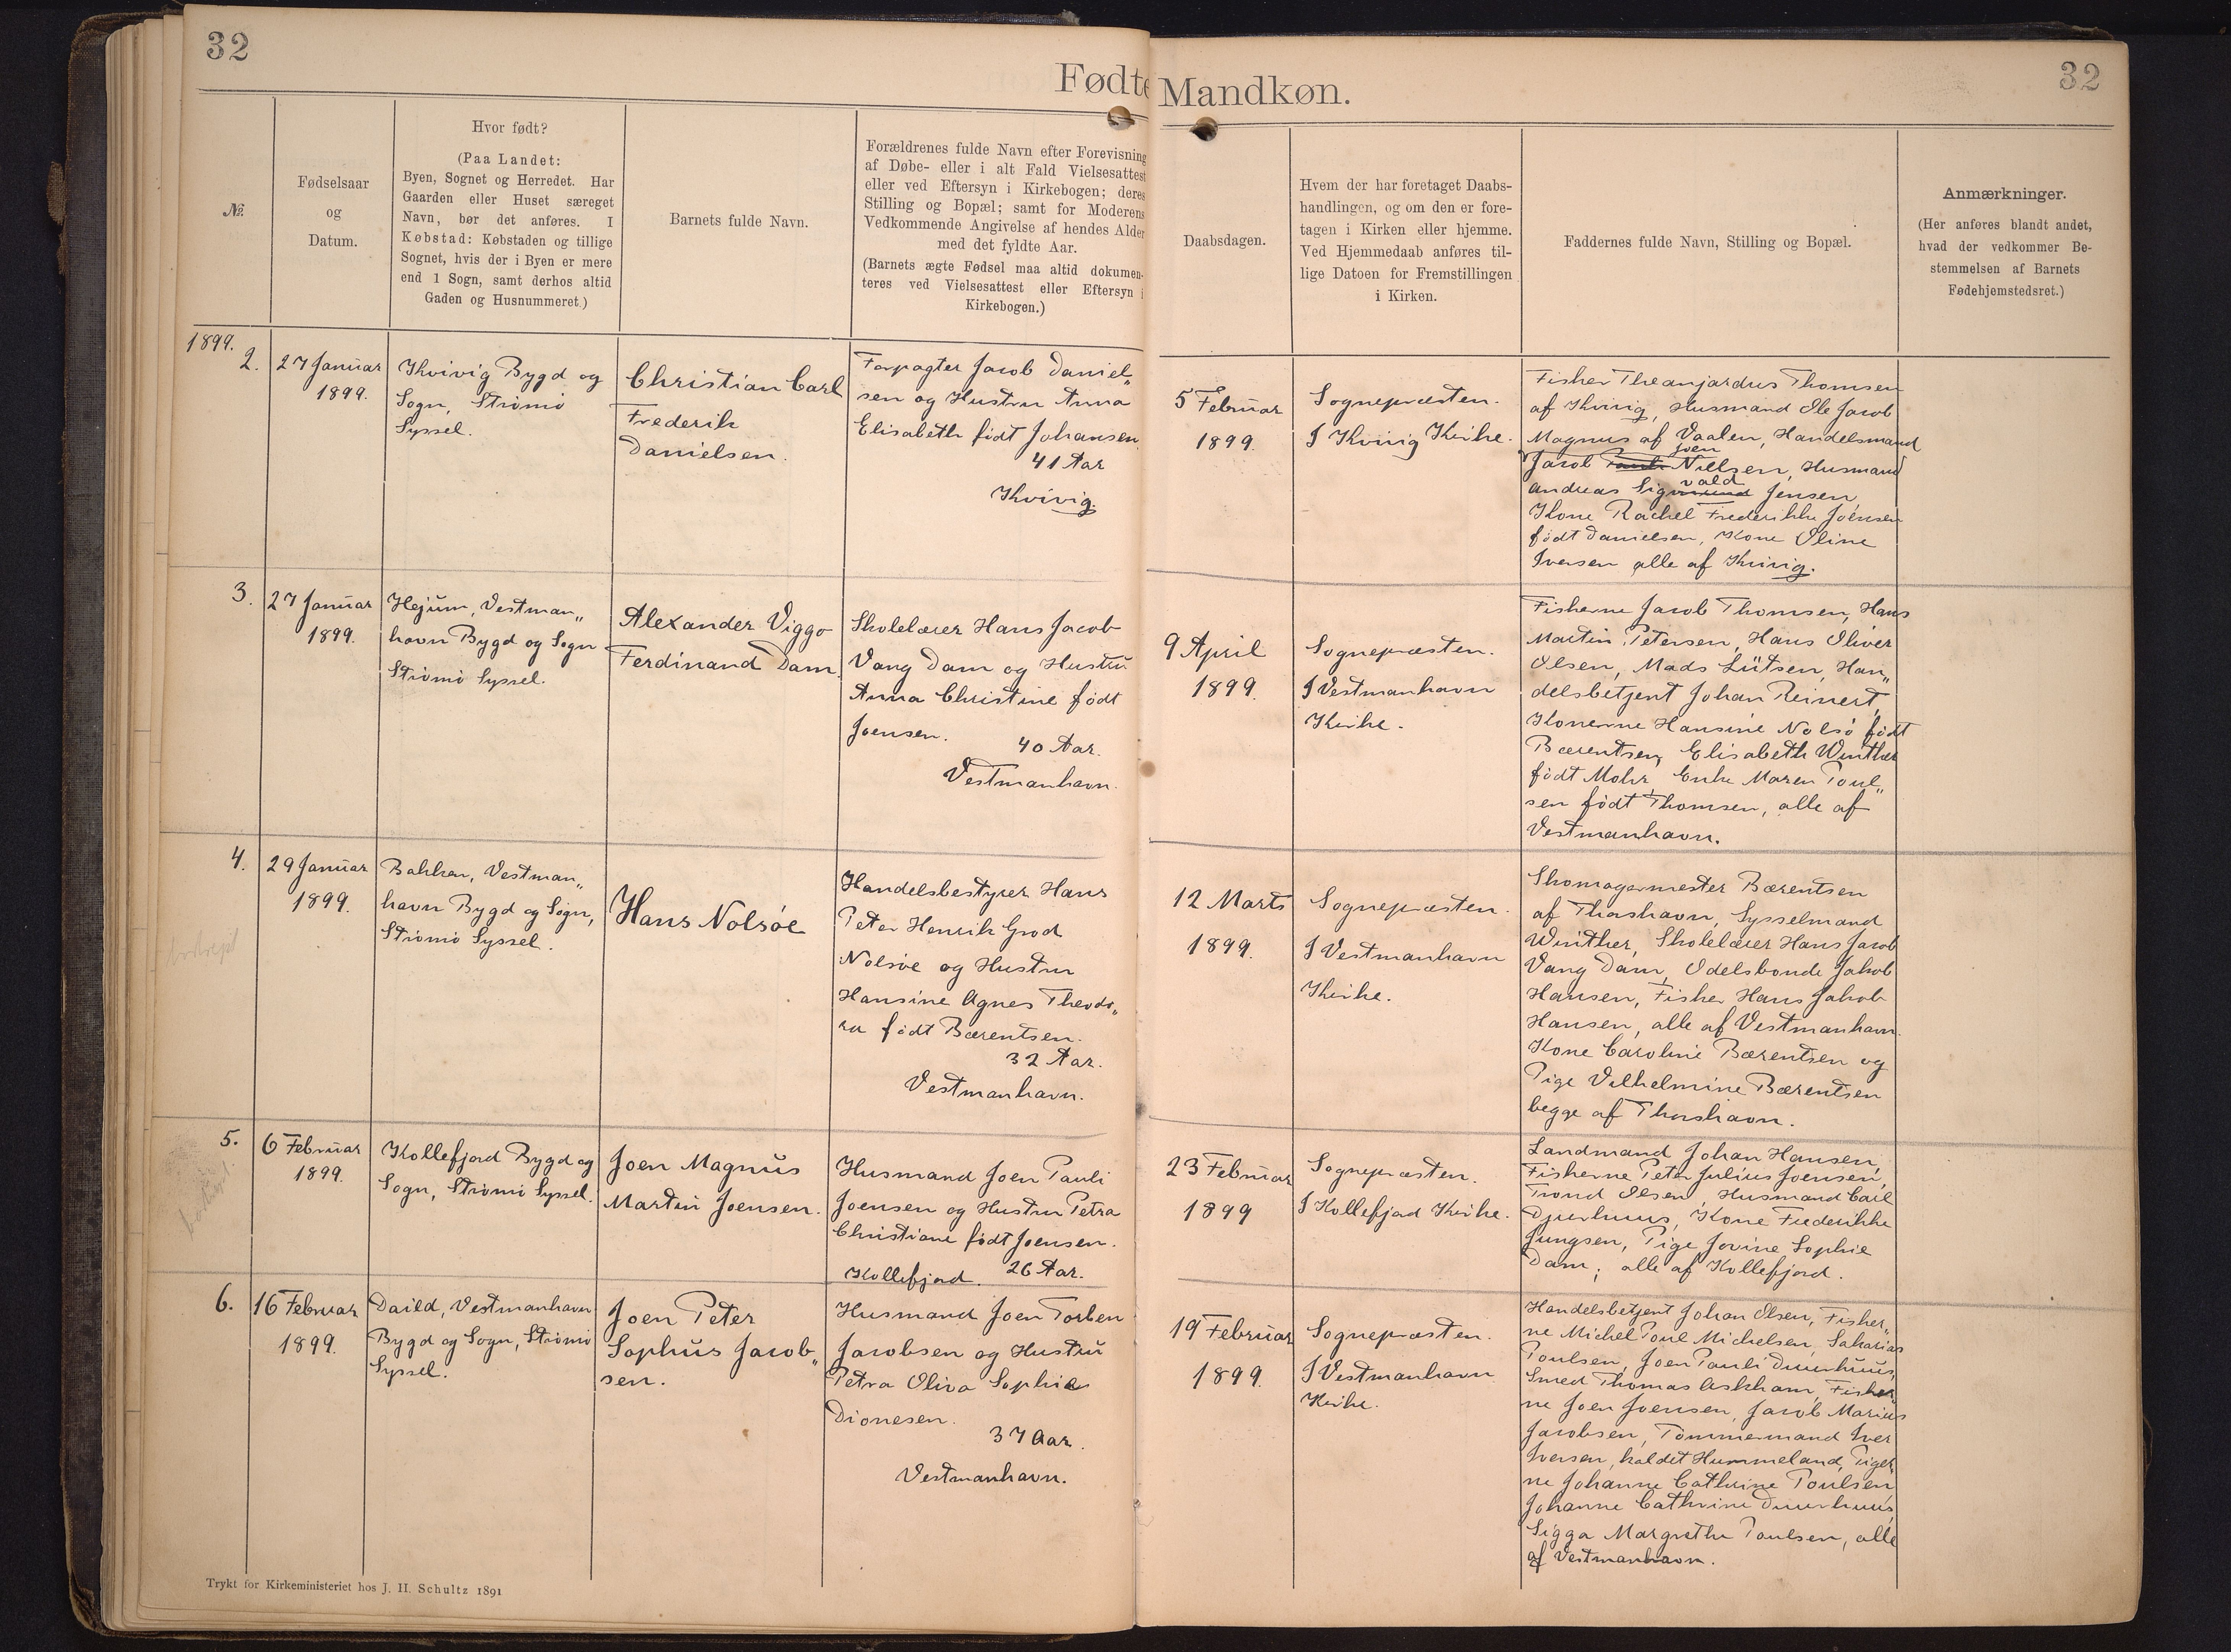 32
Fødte
№
Fødselsaar
og
Datum.
Hvor født?
(Paa Landet:
Byen, Sognet og Herredet. Har
Gaarden eller Huset særeget
Navn, bør det anføres. I
Købstad: Købstaden og tillige
Sognet, hvis der i Byen er mere
end 1 Sogn, samt derhos altid
Gaden og Husnummeret.)
Barnets fulde Navn.
Forældrenes fulde Navn efter Forevisning
af Døbe- eller i alt Fald Vielsesattest
eller ved Eftersyn i Kirkebogen; deres
Stilling og Bopæl; samt for Moderens
Vedkommende Angivelse af hendes Alder
med det fyldte Aar.
(Barnets ægte Fødsel maa altid dokumen-
teres ved Vielsesattest eller Eftersyn i
Kirkebogen.)
1899.
2.
27 Januar
1899.
Kvivig Bygd og
Sogn, Strømø
Syssel.
Christian Carl
Frederik
Danielsen.
Forpagter Jacob Daniel„
sen og Hustru Anna
Elisabeth født Johansen
41 Aar
Kvivig.
3.
27 Januar
1899.
Hejum, Vestman„
havn Bygd og Sogn
Strømø Syssel.
Alexander Viggo
Ferdinand Dam.
Skolelærer Hans Jacob
Vang Dam og Hustru
Anna Christine født
Joensen.
40 Aar.
Vestmanhavn.
4.
29 Januar
1899.
Bakken, Vestman„
havn Bygd og Sogn,
Strømø Syssel.
Hans Nolsøe
Handelsbestyrer Hans
Peter Henrik Grod
Nolsøe og Hustru
Hansine Agnes Theodo„
ra født Bærentsen.
32 Aar.
Vestmanhavn.
5.
6 Februar
1899.
Kollefjord Bygd og
Sogn, Strømø Syssel.
Joen Magnus
Martin Joensen.
Husmand Joen Pauli
Joensen og Hustru Petra
Christiane født Joensen.
Kollefjord. 26 Aar.
6.
16 Februar
1899.
Daild, Vestmanhavn
Bygd og Sogn, Strømø
Syssel.
Joen Peter
Sophus Jacob„
sen.
Husmand Joen Torben
Jacobsen og Hustru
Petra Oliva Sophie
Dionesen.
37 Aar.
Vestmanhavn.
Trykt for Kirkeministeriet hos J. H. Schultz 1891
Mandkøn.
32
Daabsdagen.
Hvem der har foretaget Daabs-
handlingen, og om den er fore-
tagen i Kirken eller hjemme.
Ved Hjemmedaab anføres til-
lige Datoen for Fremstillingen
i Kirken.
Faddernes fulde Navn, Stilling og Bopæl.
Anmærkninger.
(Her anføres blandt andet,
hvad der vedkommer Be-
stemmelsen af Barnets
Fødehjemstedsret.)
5 Februar
1899.
Sognepræsten.
I Kvivig Kirke.
Fisker Theanjardus Thomsen
af Kvivig, Husmand Ole Jacob
Magnus af Vaalen, Handelsmand
Joen
Jacob Nielsen, Husmand
vald
Andreas Sigmund Jensen
Kone Rachel Frederikke Joensen
født Danielsen, Kone Oline
Iversen alle af Kvivig.
9 April
1899.
Sognepræsten.
I Vestmanhavn
Kirke.
Fiskerne Jacob Thomsen, Hans
Martin Petersen, Hans Oliver
Olsen, Mads Lütsen, Han„
delsbetjent Johan Reinert,
Konerne Hansine Nolsø født
Bærentsen, Elisabeth Winther
født Mohr, Enke Maren Poul„
sen født Thomsen, alle af
Vestmanhavn.
12 Marts
1899.
Sognepræsten.
I Vestmanhavn
Kirke.
Skomagermester Bærentsen
af Thorshavn, Sysselmand
Winther, Skolelærer Hans Jacob
Vang Dam, Odelsbonde Jakob
Hansen, Fisker Hans Jakob
Hansen, alle af Vestmanhavn.
Kone Caroline Bærentsen og
Pige Vilhelmine Bærentsen
begge af Thorshavn.
23 Februar
1899
Sognepræsten.
I Kollefjord Kirke.
Landmand Johan Hansen,
Fiskerne Peter Julius Joensen,
Trond Olsen, Husmand Carl
Djurhuus, Kone Frederikke
Jungsen, Pige Jovine Sophie
Dam; alle af Kollefjord.
19 Februar
1899.
Sognepræsten.
I Vestmanhavn
Kirke.
Handelsbetjent Johan Olsen, Fisker„
ne Michel Poul Michelsen, Sakarias
Poulsen, Joen Pauli Duurhuus,
Smed Thomas Askham, Fisker„
ne Joen Joensen, Jacob Marius
Jacobsen, Tømmermand Iver
Iversen, kaldet Hummeland, Piger„
ne Johanne Cathrine Poulsen,
Johanne Cathrine Duurhuus,
Sigga Margrethe Poulsen, alle
af Vestmanhavn.